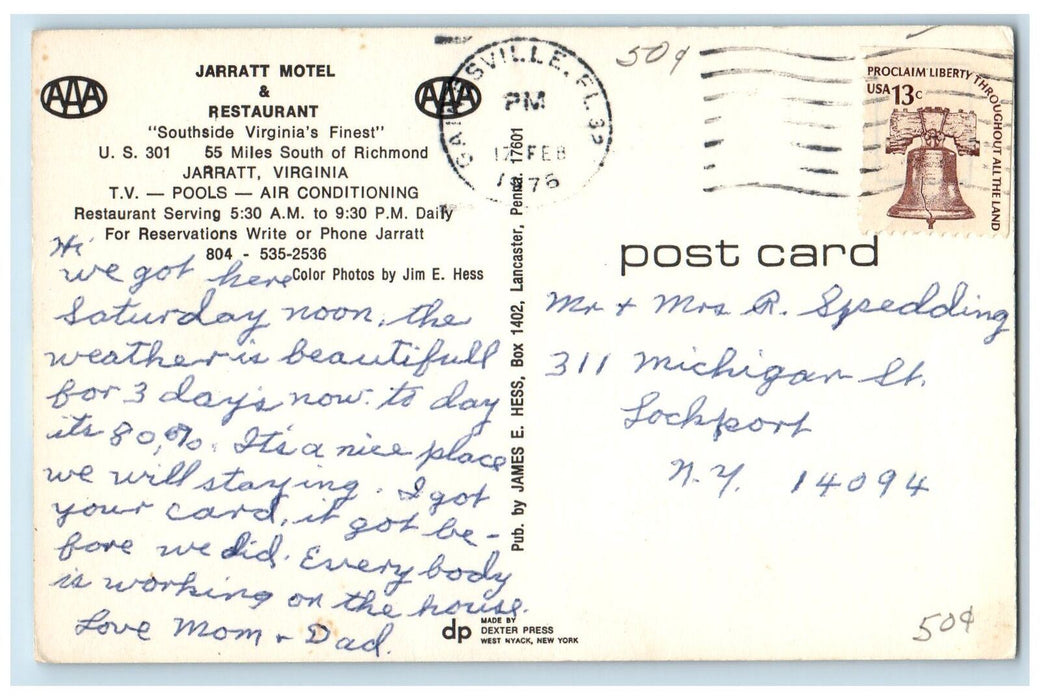 JARRATT MOTEL
&
RESTAURANT
AAA
AAA
"Southside Virginia's Finest"
U. S. 301 55 Miles South of Richmond
JARRATT, VIRGINIA
T.V. — POOLS — AIR CONDITIONING
Restaurant Serving 5:30 A.M. to 9:30 P.M. Daily
For Reservations Write or Phone Jarratt
804 - 535-2536
Color Photos by Jim E. Hess
Hi
we got here
Saturday noon, the
weather is beautifull
for 3 day's now. to day
its 80,%. It's a nice place
we will staying. I got
your card, it got be-
fore we did. Every body
is working on the house.
Love Mom + Dad.
Pub. by JAMES E. HESS, Box 1402, Lancaster, Penna. 17601
dp
MADE BY
DEXTER PRESS
WEST NYACK, NEW YORK
SVILLE, FL 32
PM
17 FEB
1976
50¢
PROCLAIM LIBERTY THROUGHOUT ALL THE LAND
USA 13c
post card
Mr + Mrs R. Spedding
311 Michigan St.
Lockport
N.Y. 14094
50¢